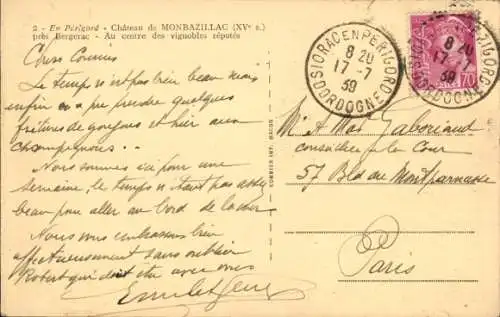 2 - En Périgord - Château de MONBAZILLAC (XVe s.)
près Bergerac - Au centre des vignobles réputés
Chers
Le temps n'est pas bien beau mais
enfin on a pu prendre quelques
fritures de goujons et hier aux
champignons
Nous sommes ici pour une
semaine, le temps n'étant pas assez
beau pour aller au bord de la mer
Nous vous embrassons bien
affectueusement sans oublier
Robert qui doit être avec vous
SIORAC EN PÉRIGORD
8 20
17 - 7
39
DORDOGNE
8 20
17 - 7
39
DORDOGNE
70
Gaboriaud
à la Cour
57 Bld du Montparnasse
Paris